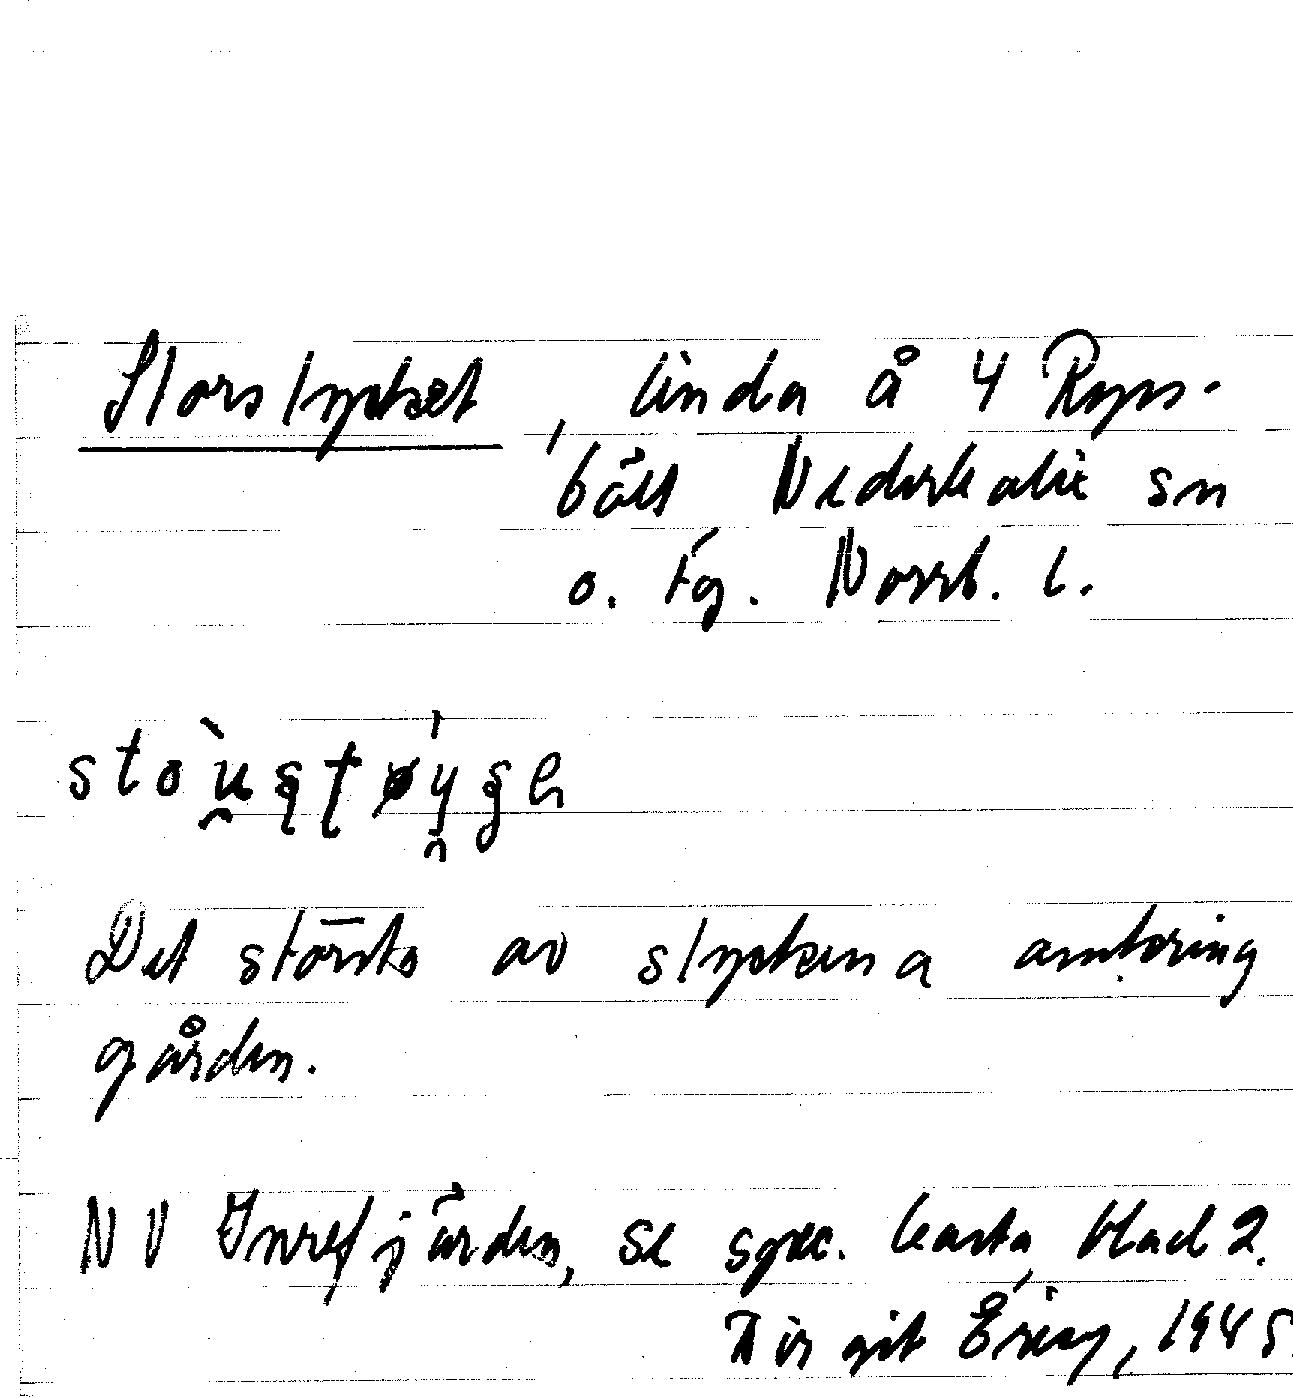 Storstycket, linda å 4 Ryss-
bält Nederkalix sn
o. tg. Norrb. l.
Det största av styckena omkring
gården.
NV Inrefjärden, se spec. karta, blad 2.
Birgit Ering, 1945.